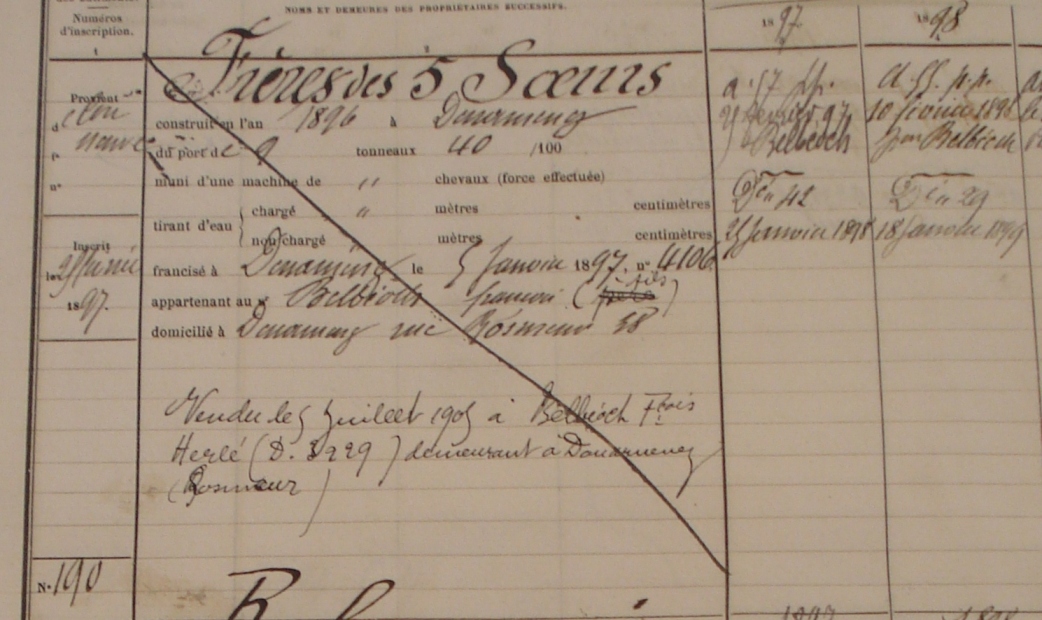 NOMS ET DEMEURES DES PROPRIÉTAIRES SUCCESSIFS.
Numéros
d'inscription.
1
2
1897
1898
Frères des 5 Sœurs
Provient
construit en l'an 1896 à Douarnenez
du port de 9 tonneaux 40 /100
n°
muni d'une machine de " chevaux (force effectuée)
tirant d'eau
chargé " mètres centimètres
non chargé " mètres centimètres
Inscrit
le
1897.
francisé à Douarnenez le 5 Janvier 1897, n° 4106
appartenant au Sr Belbéoch françois (fils)
domicilié à Douarnenez rue Rosmeur 38
Vendu le 5 Juillet 1905 à Belbéoch Fçois
Herlé (D. 3229) demeurant à Douarnenez
(Rosmeur)
N° 190
a. 57 pp.
février 97
Belbéoch
Dén 42
Janvier 1898
a. ff. p.p.
10 février 1898
pour Belbéoch
Dén 29
18 Janvier 1899